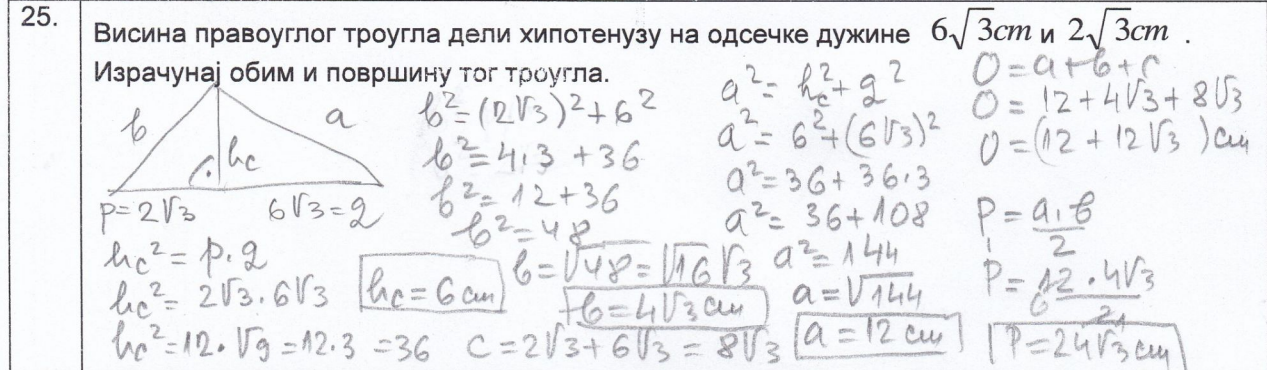 25.
Висина правоуглог троугла дели хипотенузу на одсечке дужине 6√3cm и 2√3cm .
Израчунај обим и површину тог троугла.
b
a
hc
p=2√3
6√3=q
hc²=p·q
hc²=2√3·6√3
hc²=12·√9=12·3=36
hc=6cm
b²=(2√3)²+6²
b²=4·3+36
b²=12+36
b²=48
b=√48=√16√3
b=4√3cm
c=2√3+6√3=8√3
a²=hc²+q²
a²=6²+(6√3)²
a²=36+36·3
a²=36+108
a²=144
a=√144
a=12cm
O=a+b+c
O=12+4√3+8√3
O=(12+12√3)cm
P=a·b/2
P=12·4√3/2
6
1
P=24√3cm